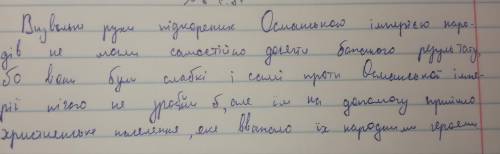 Визвольні рухи підкорених Османською імперією наро-
дів не могли самостійно досягти бажаного результату,
бо вони були слабкі і самі проти Османської імпе-
рії нічого не зробили б, але їм на допомогу прийшло
християнське населення, яке вважало їх народними героями